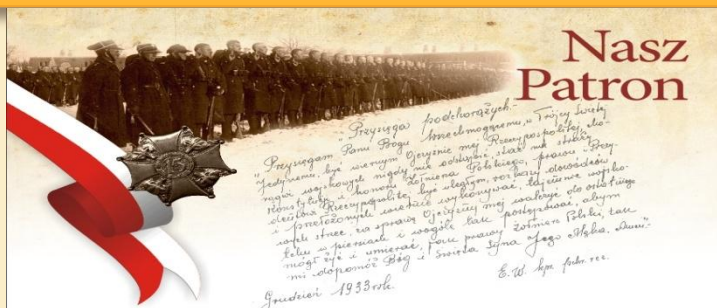 Nasz
Patron
"Przysięga podchorążych"
"Przysięgam Panu Bogu Wszechmogącemu, w Trójcy Świętej
Jedynemu, być wiernym Ojczyźnie mej Rzeczypospolitej
wojskowych nigdy nie odstąpić, stać na straży
Konstytucji i honoru Żołnierza Polskiego, prawu i
Rzeczypospolitej być uległym, rozkazy dowódców
i przełożonych wiernie wykonywać, tajemnic
strzec, za sprawę Ojczyzny mej walczyć do ostatniego
tchu w piersiach i w ogóle tak postępować, abym
mógł żyć i umierać, jako prawy żołnierz Polski, tak
mi dopomóż Bóg i Święta Syna Jego Męka, Amen".
Grudzień 1933 rok.
E. W. kpr. pchr. rez.